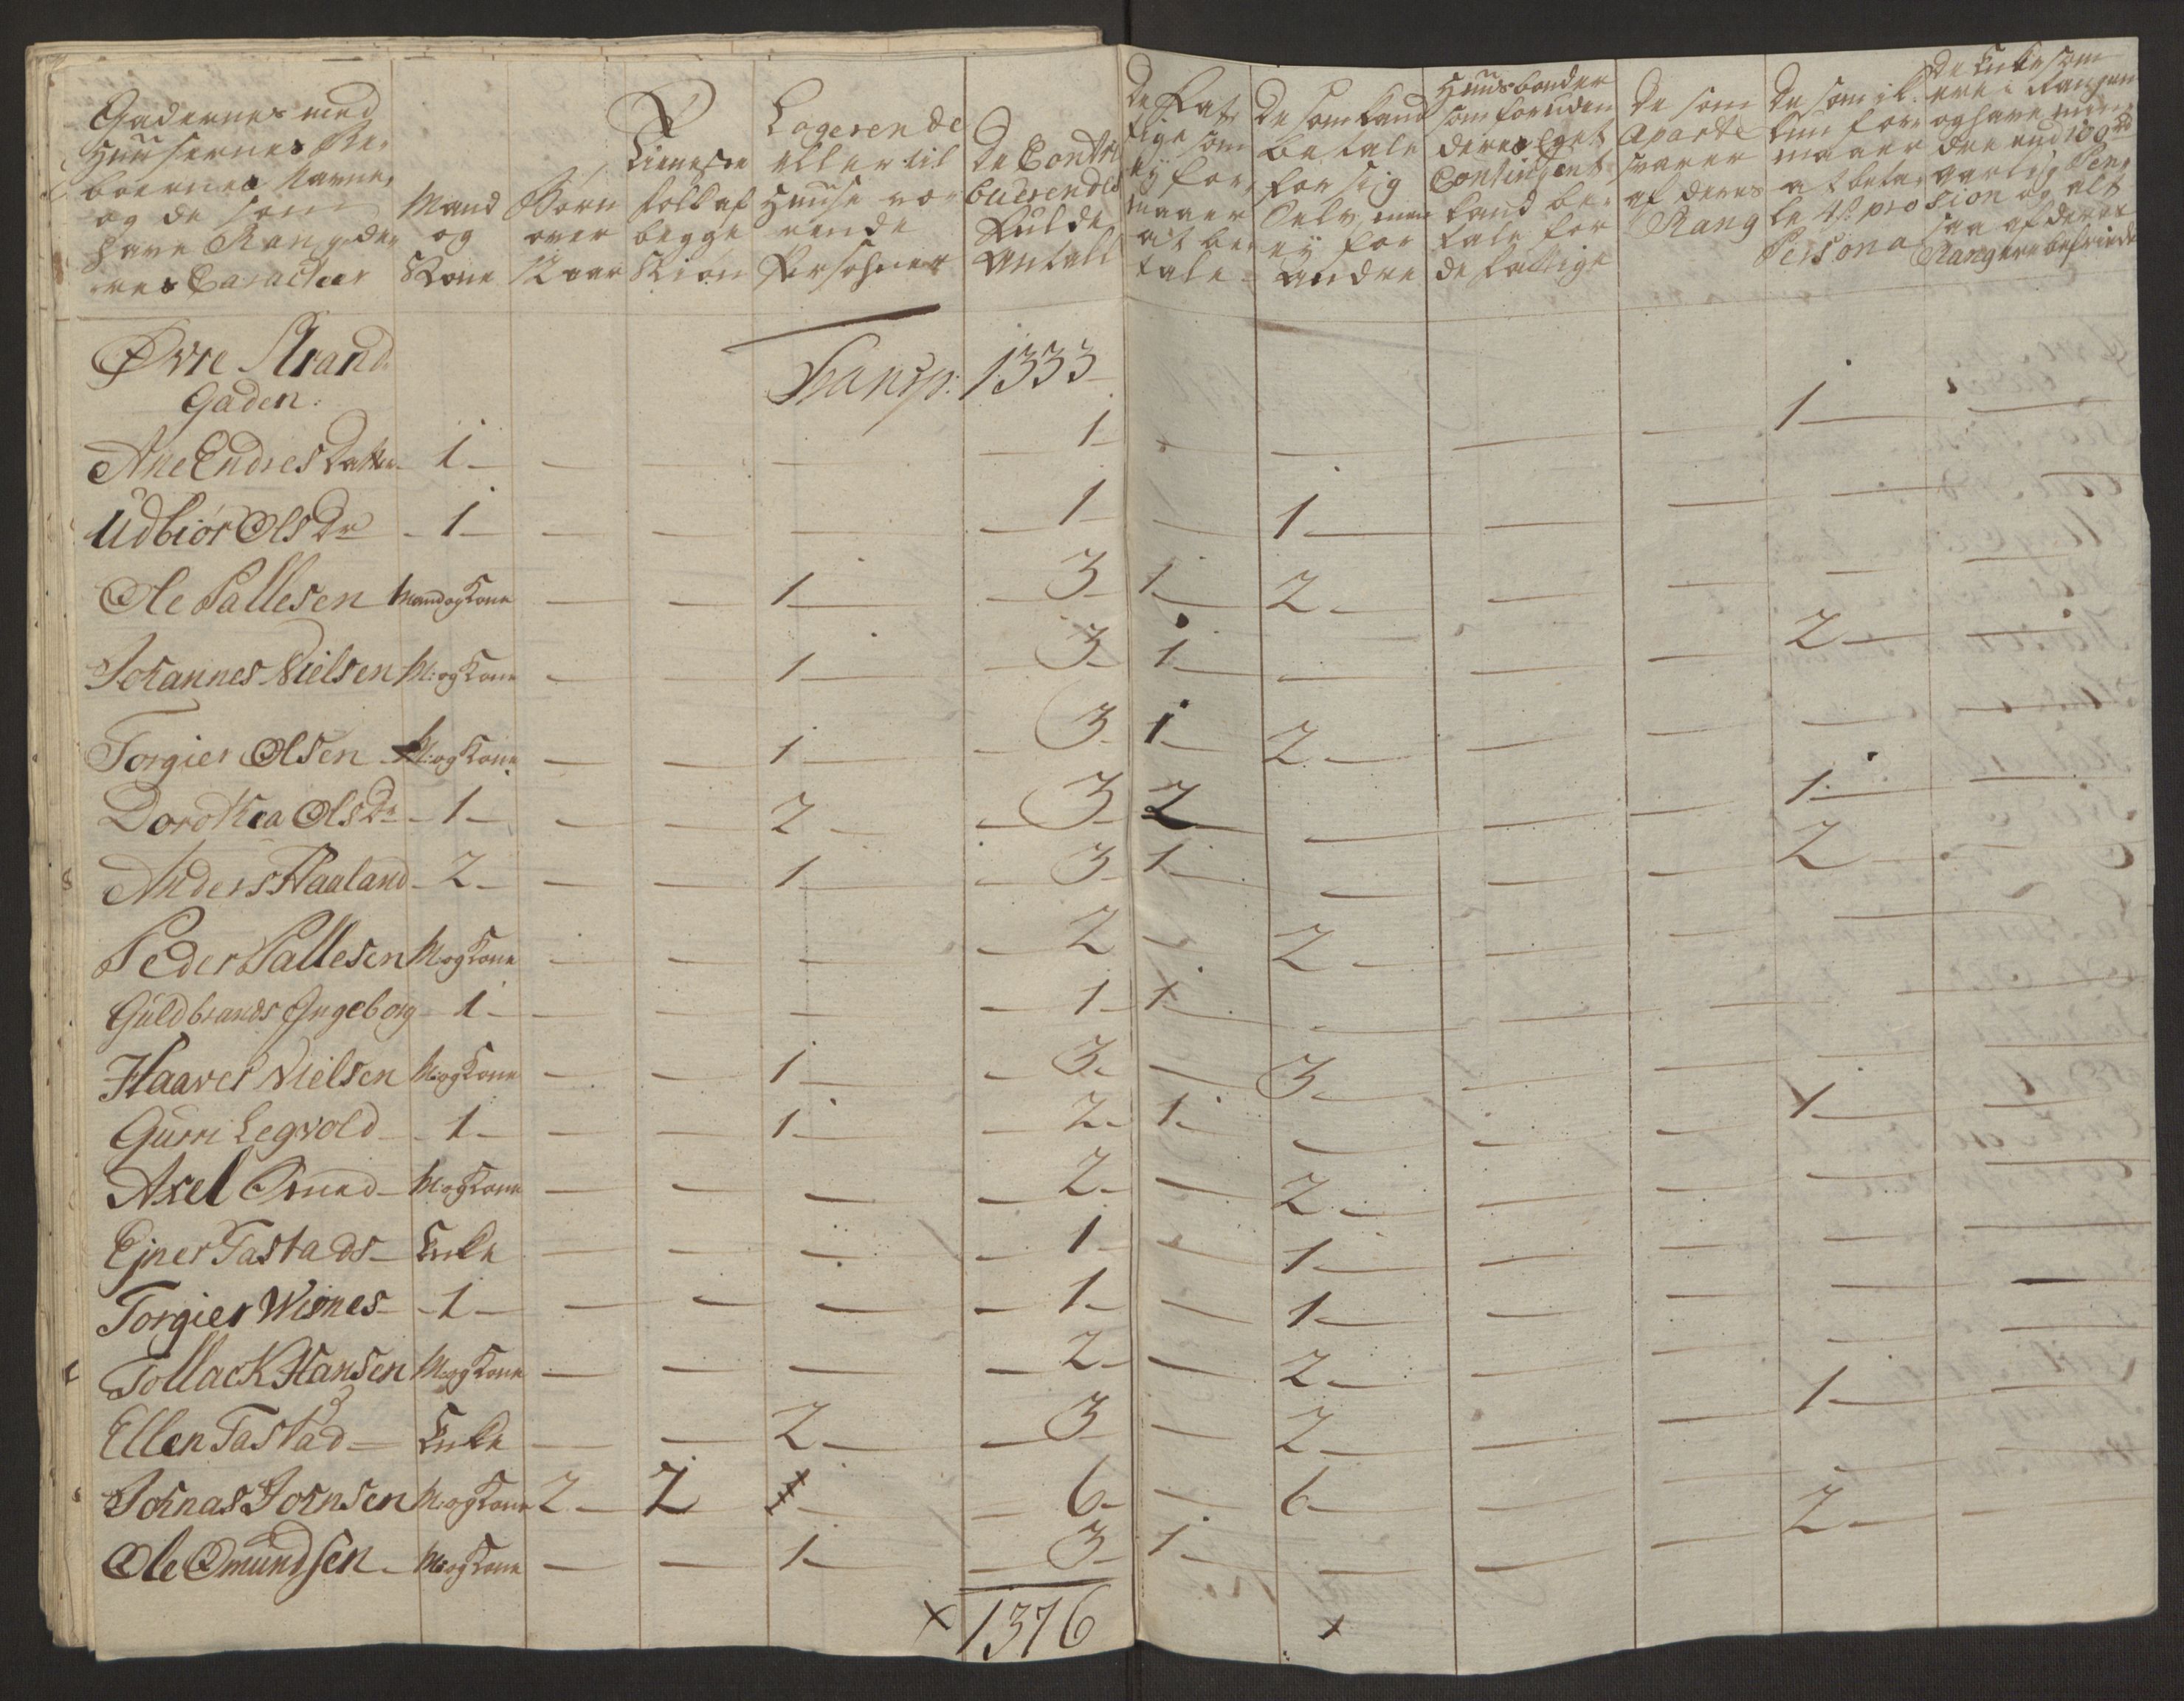 Gadernes med
Huusernes Be-
boernes Navne,
og de som
have Rang de-
res Caracteer
Mand
og
Kone
Børn
over
12 aar
Tieneste
folk af
begge
Kiøn
Logerende
eller til
Huuse væ-
rende
Persohner
De Contri-
buerendes
Fulde
Antall
De Fat-
tige som
ej for-
maaer
at be-
tale
De som kand
betale
for sig
Selv, men
ej for
andre
Huusbonder
som foruden
deres Eget
Contingent
kand be-
tale for
de fattige
De som
aparte
svarer
af deres
Rang
De som ik-
kun for-
maaer
at beta-
le 4 s pro
Persona
De Enker som
ere i Rangen
og have min-
dre end 100 rd
aarlig Pen-
sion og alt
saa af deres
Rang ere befriede
Øvre Strand
Gaden: Transp: 1333
Ane Endres Datter 1 — — — — 1 — — — — 1 —
Udbiør Ols Dr 1 — — — — 1 — 1 — — — —
Ole Pallesen Mand og Kone — — 1 — 3 1 2 — — — —
Johannes Nielsen M: og Kone — — 1 — 3 1 — — — 2 —
Torgier Olsen M: og Kone — — 1 — 3 1 2 — — — —
Dorothea Ols Dr 1 — — 2 — 3 2 — — — 1 —
Anders Haaland 2 — — 1 — 3 1 — — — 2 —
Peder Pallesen M: og Kone — — — — 2 — 2 — — — —
Guldbrands Ingeborg 1 — — — — 1 1 — — — — —
Haaver Nielsen M: og Kone — — 1 — 3 — 3 — — — —
Gurri Legvold 1 — — 1 — 2 1 — — — 1 —
Axel Omed M: og Kone — — — — 2 — 2 — — — —
Ejner Tastads Enke — — — — 1 — 1 — — — —
Torgier Wisnes 1 — — — — 1 — 1 — — — —
Tollack Hansen M: og Kone — — — — 2 — 2 — — — —
Ellen Tastad Enke — — 2 — 3 — 2 — — 1 —
Johnas Johnsen M: og Kone 2 2 — 6 — 6 — — — —
Ole Omundsen M: og Kone — — 1 — 3 1 — — — 2 —
x 1376 x